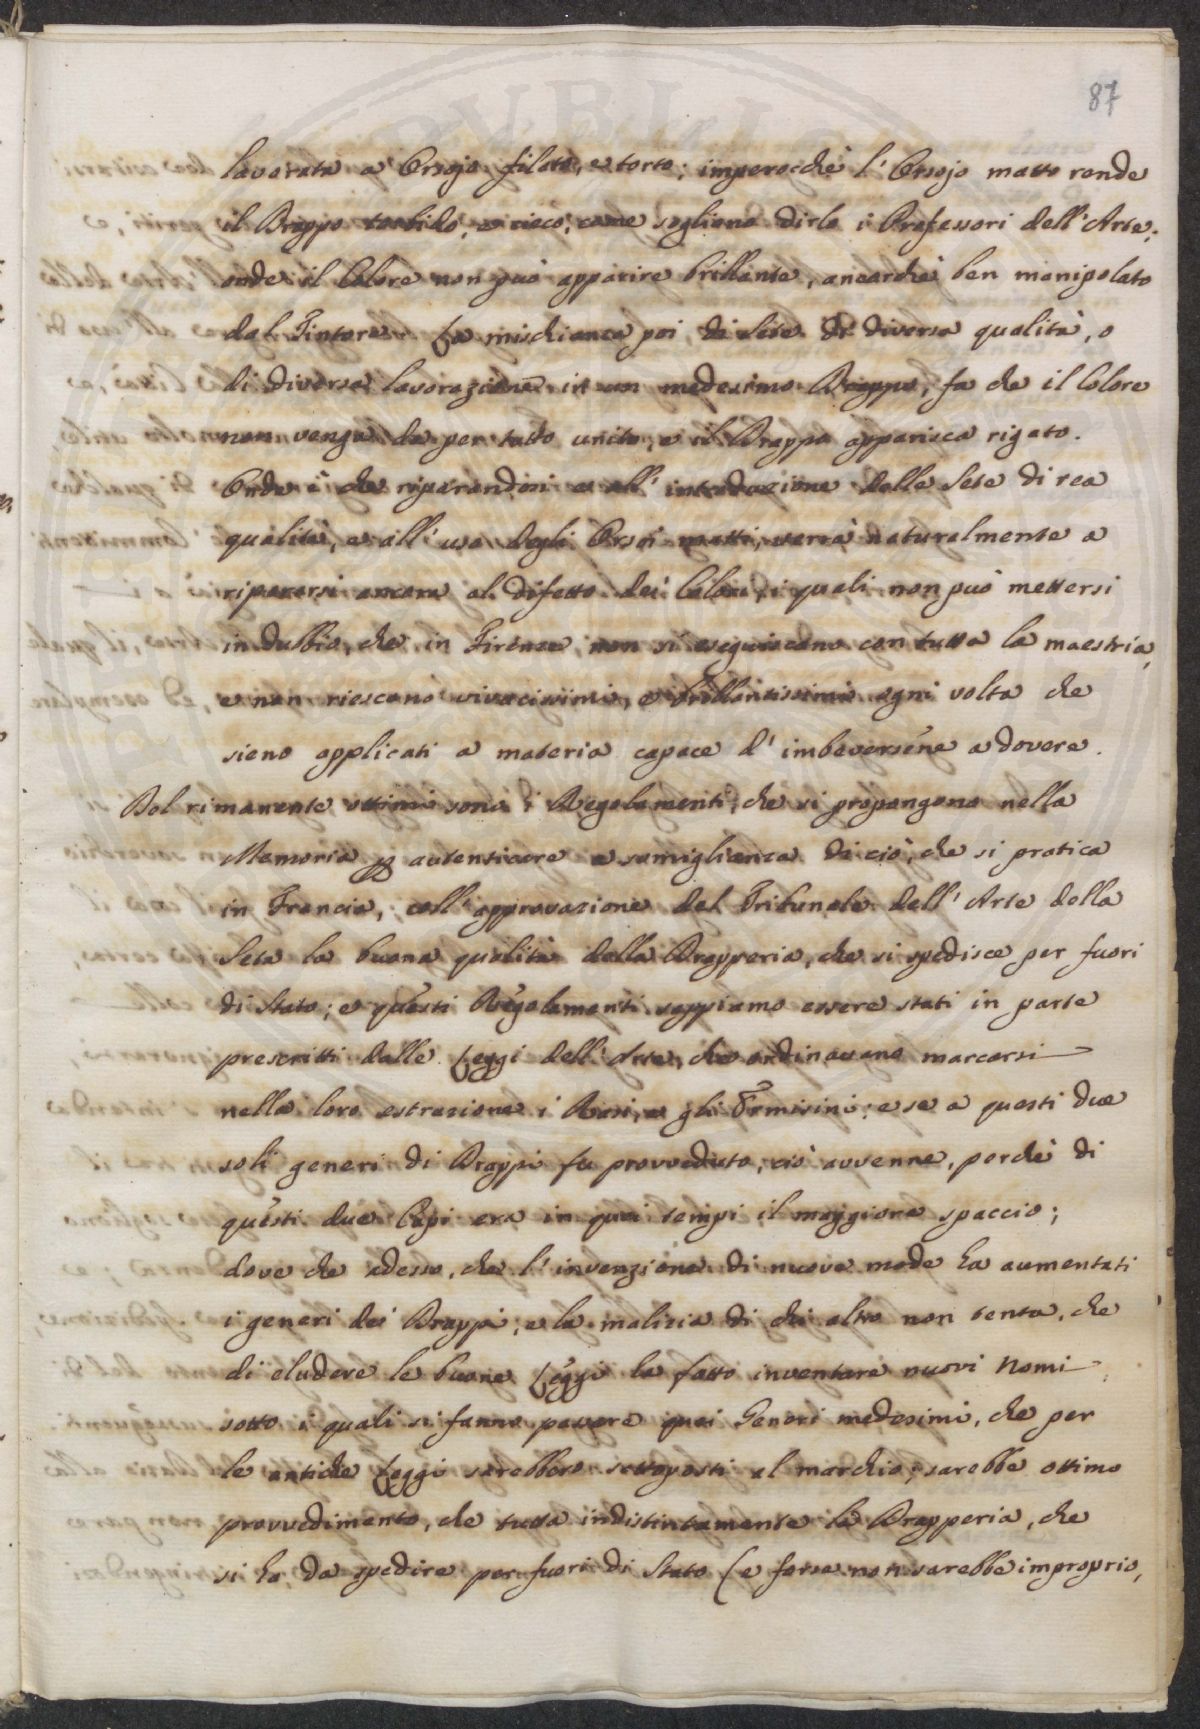 87
lavorata a' Orsojo filato, e torto; imperocchè l'Orsojo matto rende
il Drappo torbido, e cieco, come sogliono dirlo i Professori dell'Arte;
onde il Colore non può apparire brillante, ancorchè ben manipolato
dal Tintore. La mischianza poi di Sete di diversa qualità, o
di diversa lavorazione in un medesimo Drappo, fa che il Colore
non venga da per tutto unito, e il Drappo apparisca rigato.
Onde è che riparandosi e all'introduzione delle Sete di rea
qualità, e all'uso degli Orsoi matti, verrà naturalmente a
ripararsi ancora al difetto dei Colori, i quali non può mettersi
in dubbio, che in Firenze non si eseguiscano con tutta la maestria,
e non riescano vivacissimi, e brillantissimi ogni volta che
sieno applicati a materia capace d'imbeversene a dovere.
Del rimanente ottimi sono i Regolamenti, che si propongono nella
Memoria per autenticare a somiglianza di ciò, che si pratica
in Francia, coll'approvazione del Tribunale dell'Arte della
Seta la buona qualità della Drapperia, che si spedisce per fuori
di Stato; e questi Regolamenti sappiamo essere stati in parte
prescritti dalle Leggi dell'Arte, che ordinavano marcarsi
nella loro estrazione i Rasi, e gli Ermisini; e se a questi due
soli generi di Drappi fu provveduto, ciò avvenne, perchè di
questi due Capi era in quei tempi il maggiore spaccio;
dove che adesso, che l'invenzione di nuove mode ha aumentati
i generi dei Drappi, e la malizia di chi altro non tenta, che
di eludere le buone Leggi ha fatto inventare nuovi Nomi
sotto i quali si fanno passare quei Generi medesimi, che per
le antiche Leggi sarebbero sottoposti al marchio; sarebbe ottimo
provvedimento, che tutta indistintamente la Drapperia, che
si ha da spedire per fuori di Stato (e forse non sarebbe improprio,